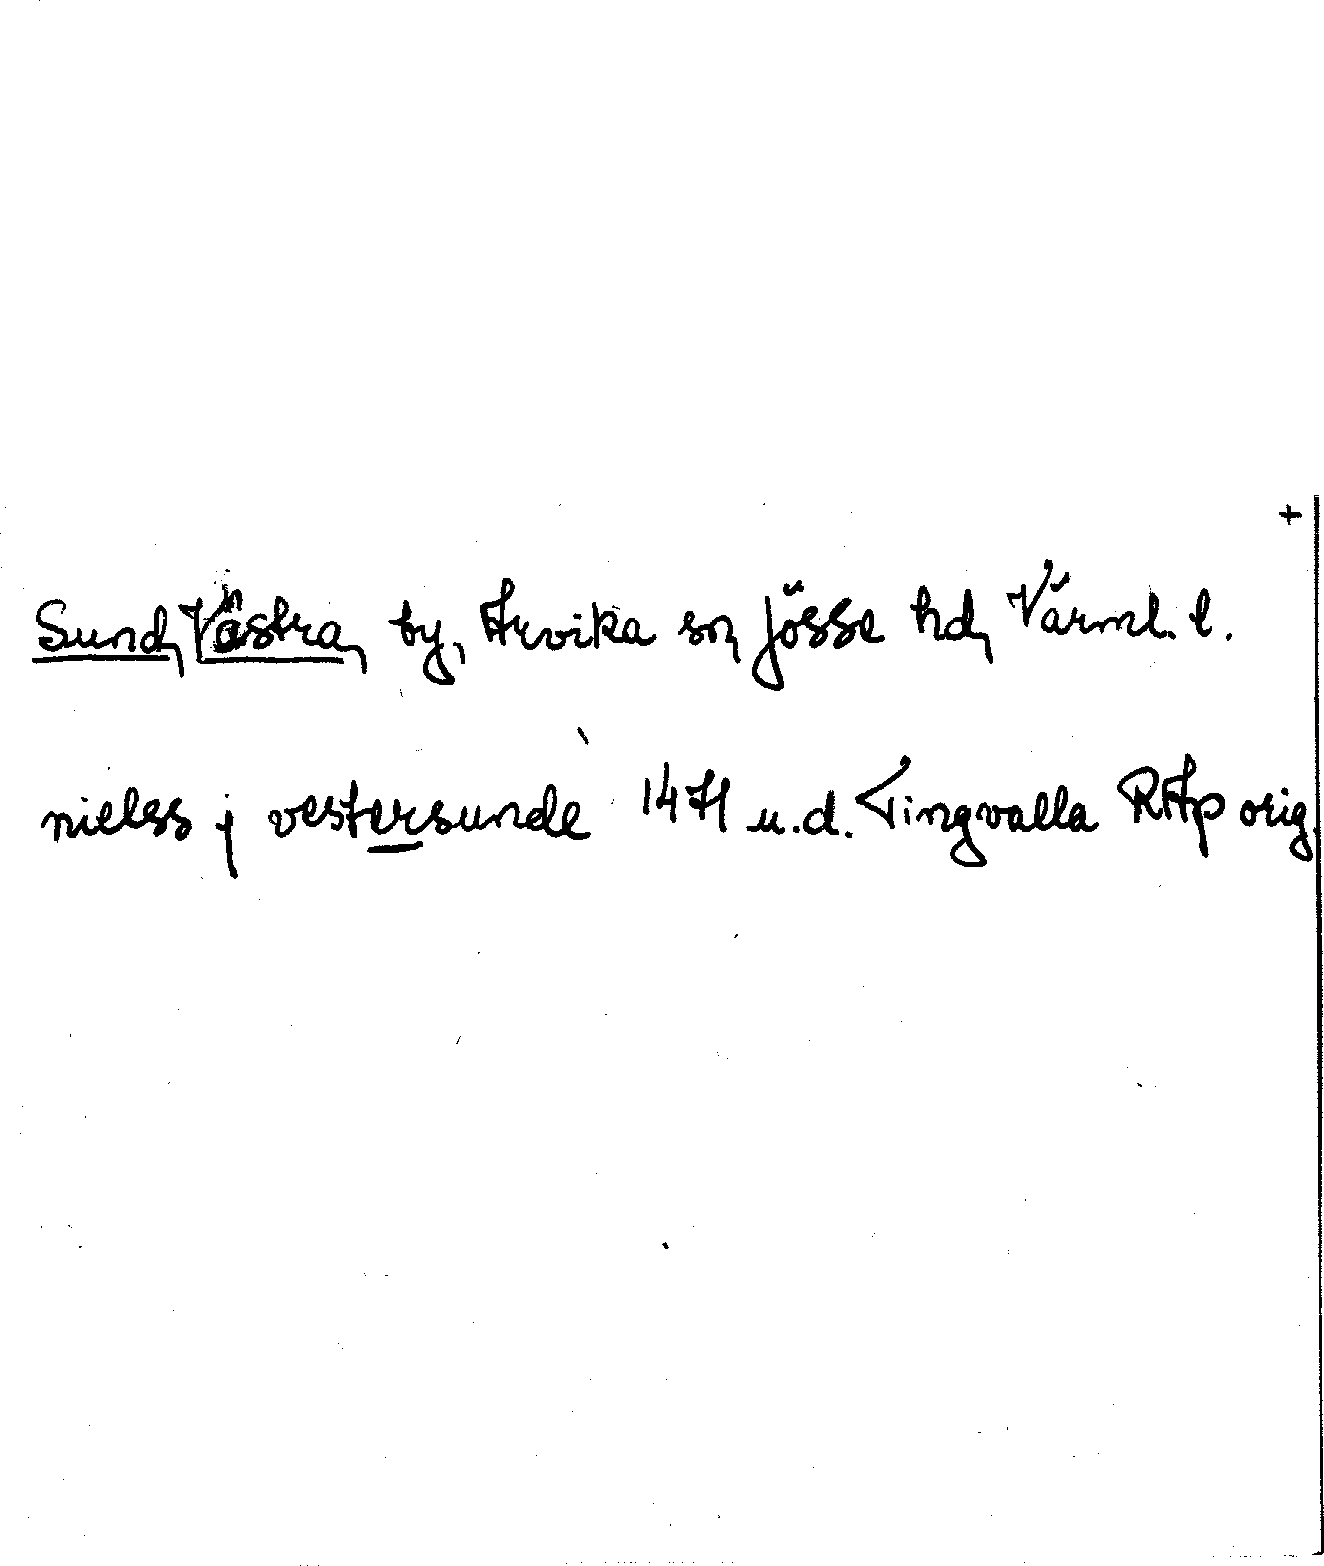 +
Sund, Västra, by, Arvika sn, Jösse hd, Värml. l.
nielss j vestersunde 1471 u.d. Tingvalla RAp orig.